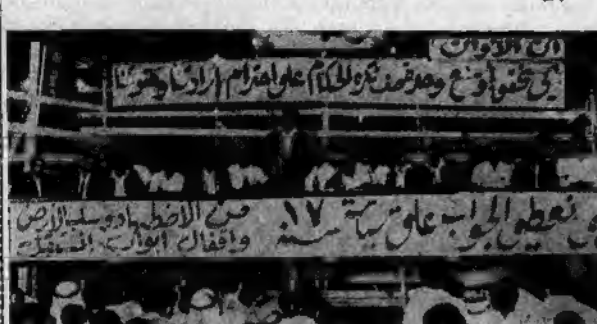 آن الاوان
كي نحقق أوسع وحدة تكره الحكام على احترام إرادتنا وحقوقنا
نعطي الجواب على سياسة ١٧ سنة
من الاضطهاد وسلب الارض
واقفال ابواب المستقبل